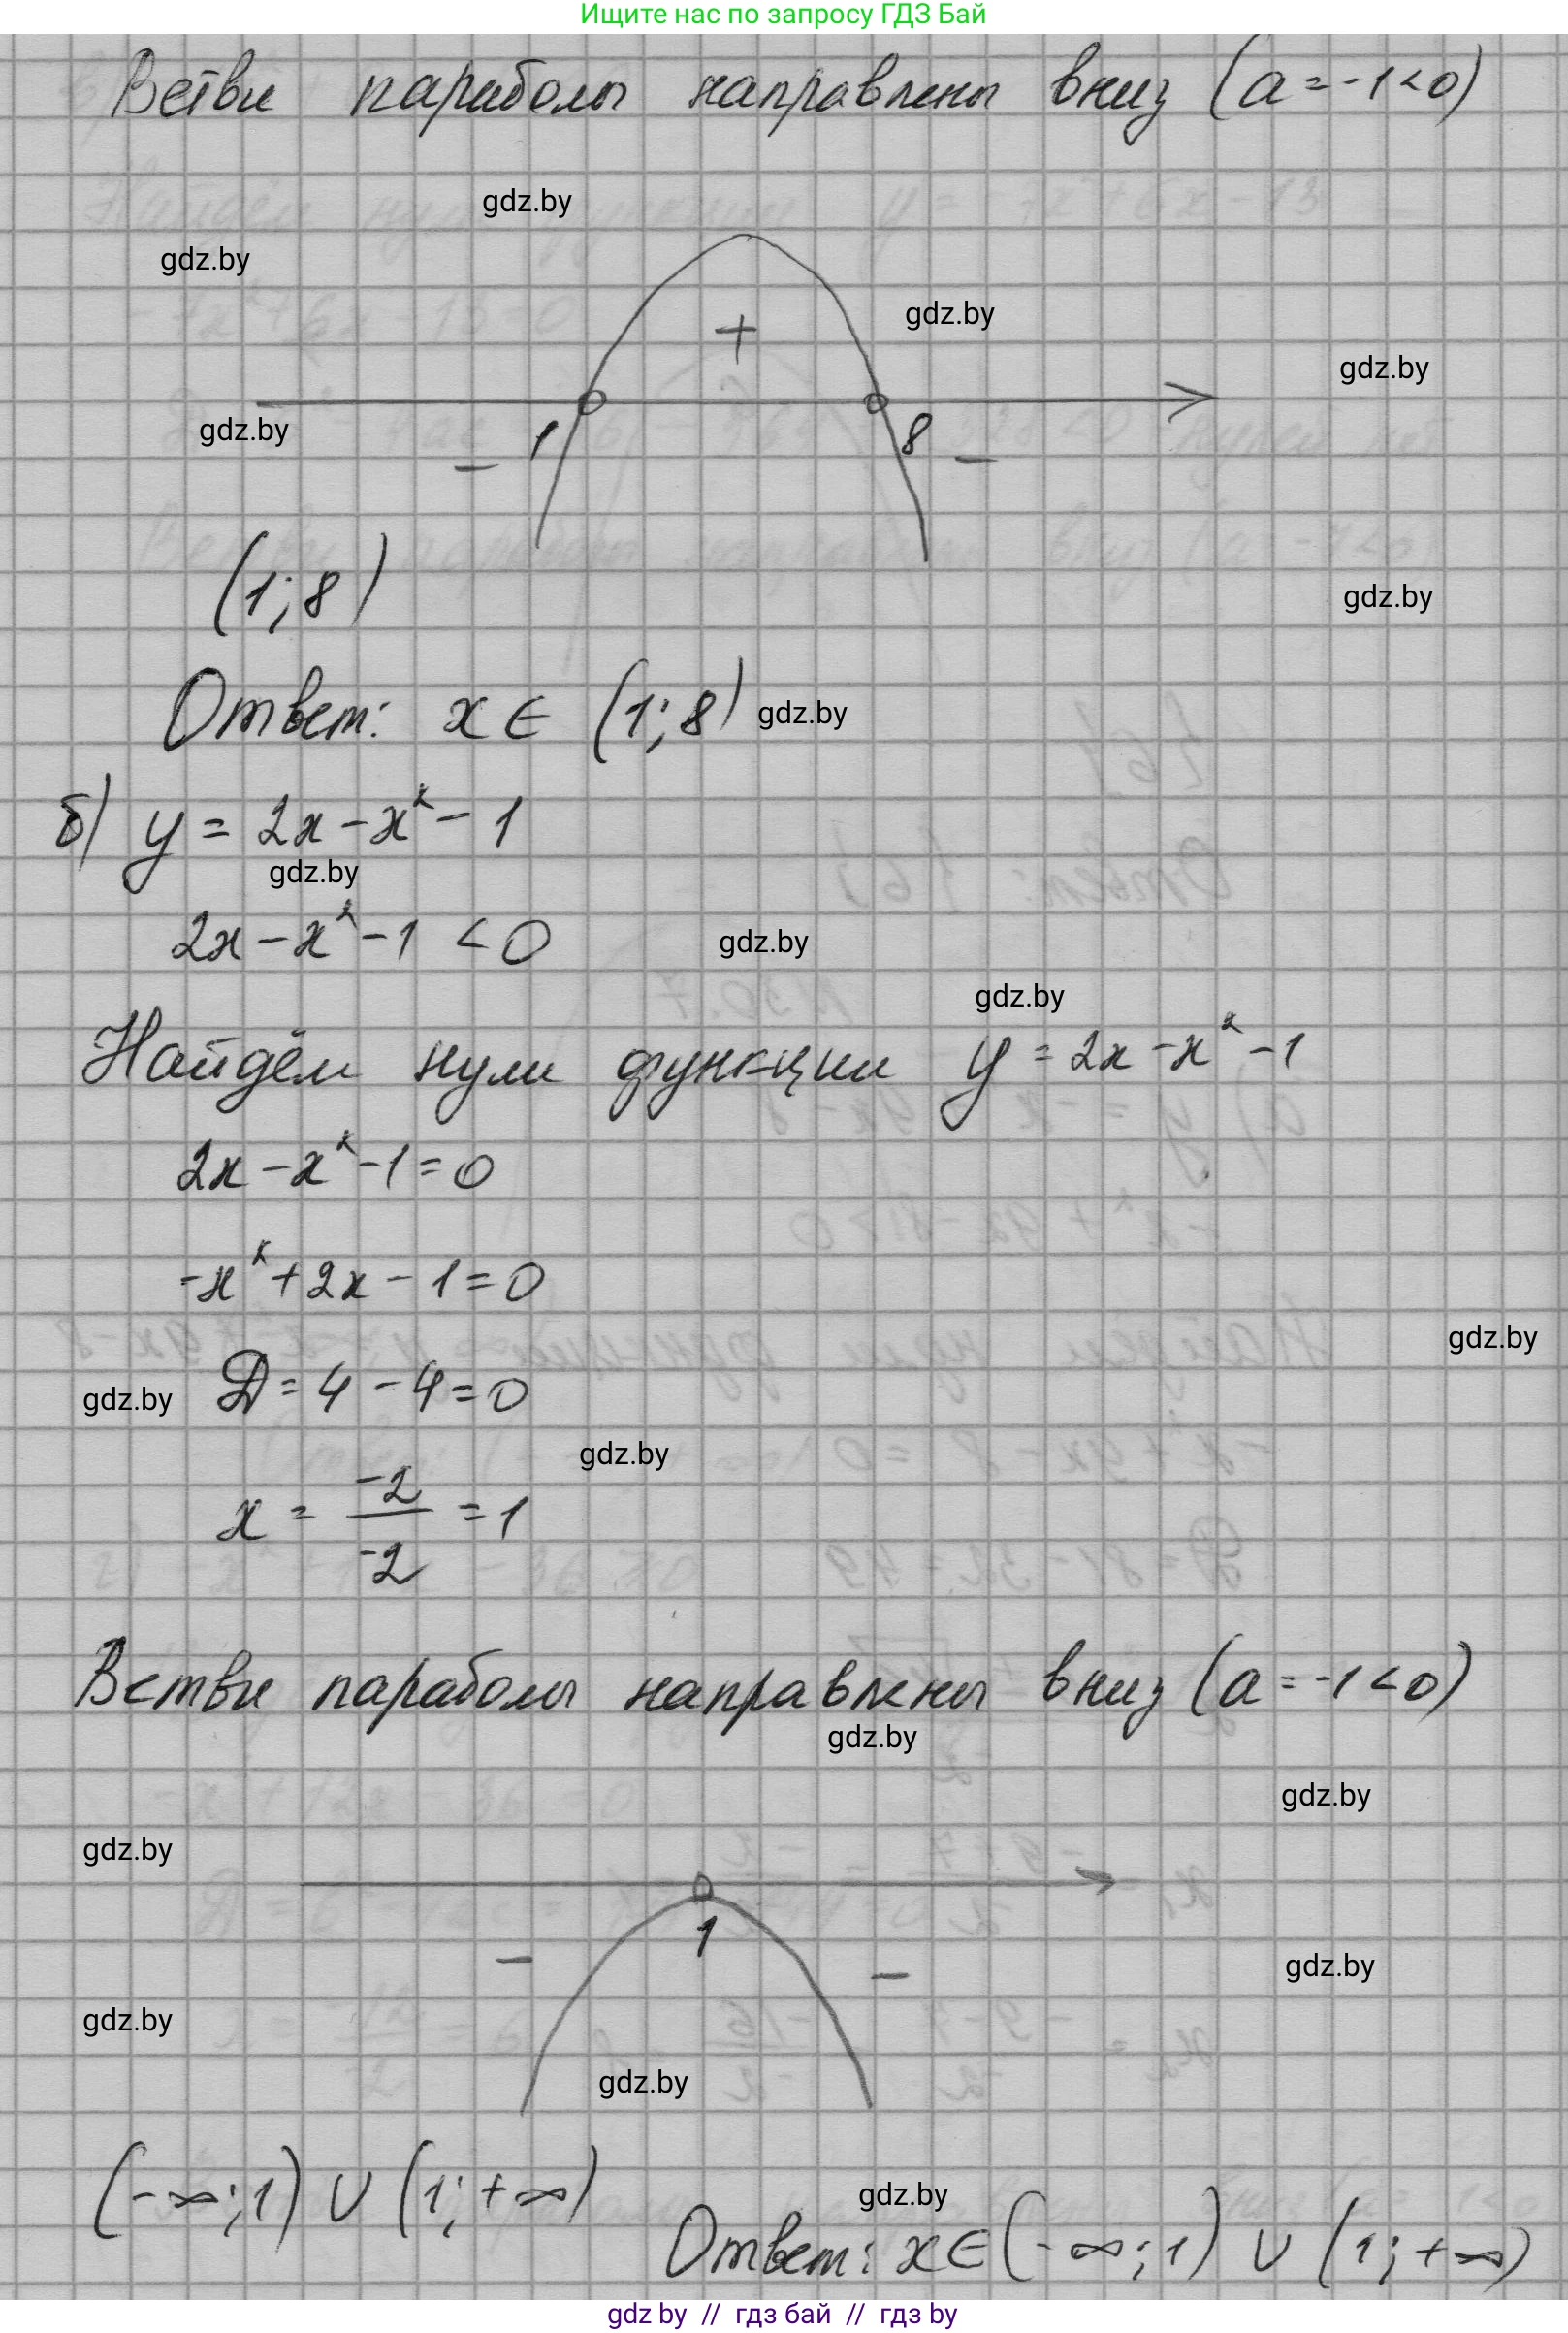 Ищите нас по запросу ГДЗ Бай
Ветви параболы направлены вниз (a = -1 < 0)
gdz.by
gdz.by
gdz.by
+
gdz.by
gdz.by
1
8
-
-
(1; 8)
gdz.by
Ответ: x ∈ (1; 8)
gdz.by
б) y = 2x - x² - 1
gdz.by
2x - x² - 1 < 0
gdz.by
gdz.by
Найдём нули функции y = 2x - x² - 1
2x - x² - 1 = 0
-x² + 2x - 1 = 0
gdz.by
gdz.by
D = 4 - 4 = 0
gdz.by
x = -2/-2 = 1
Ветви параболы направлены вниз (a = -1 < 0)
gdz.by
gdz.by
gdz.by
1
-
-
gdz.by
gdz.by
gdz.by
(-∞; 1) ∪ (1; +∞)
gdz.by
Ответ: x ∈ (-∞; 1) ∪ (1; +∞)
gdz by // гдз бай // гдз by